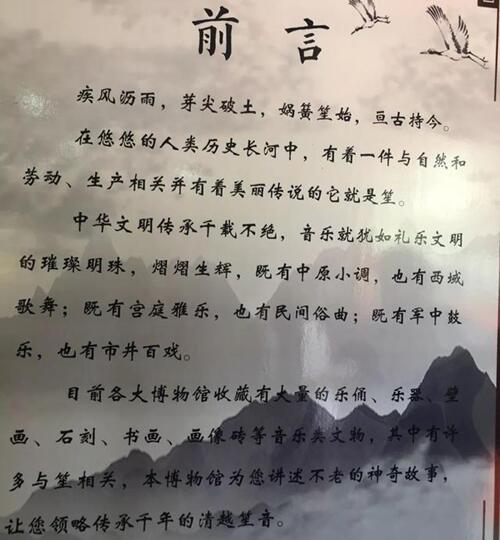 前言
疾风沥雨，芽尖破土，娲簧笙始，亘古持今。
在悠悠的人类历史长河中，有着一件与自然和
劳动、生产相关并有着美丽传说的它就是笙。
中华文明传承千载不绝，音乐就犹如礼乐文明
的璀璨明珠，熠熠生辉，既有中原小调，也有西域
歌舞；既有宫庭雅乐，也有民间俗曲；既有军中鼓
乐，也有市井百戏。
目前各大博物馆收藏有大量的乐俑、乐器、壁
画、石刻、书画、画像砖等音乐类文物，其中有许
多与笙相关，本博物馆为您讲述不老的神奇故事，
让您领略传承千年的清越笙音。